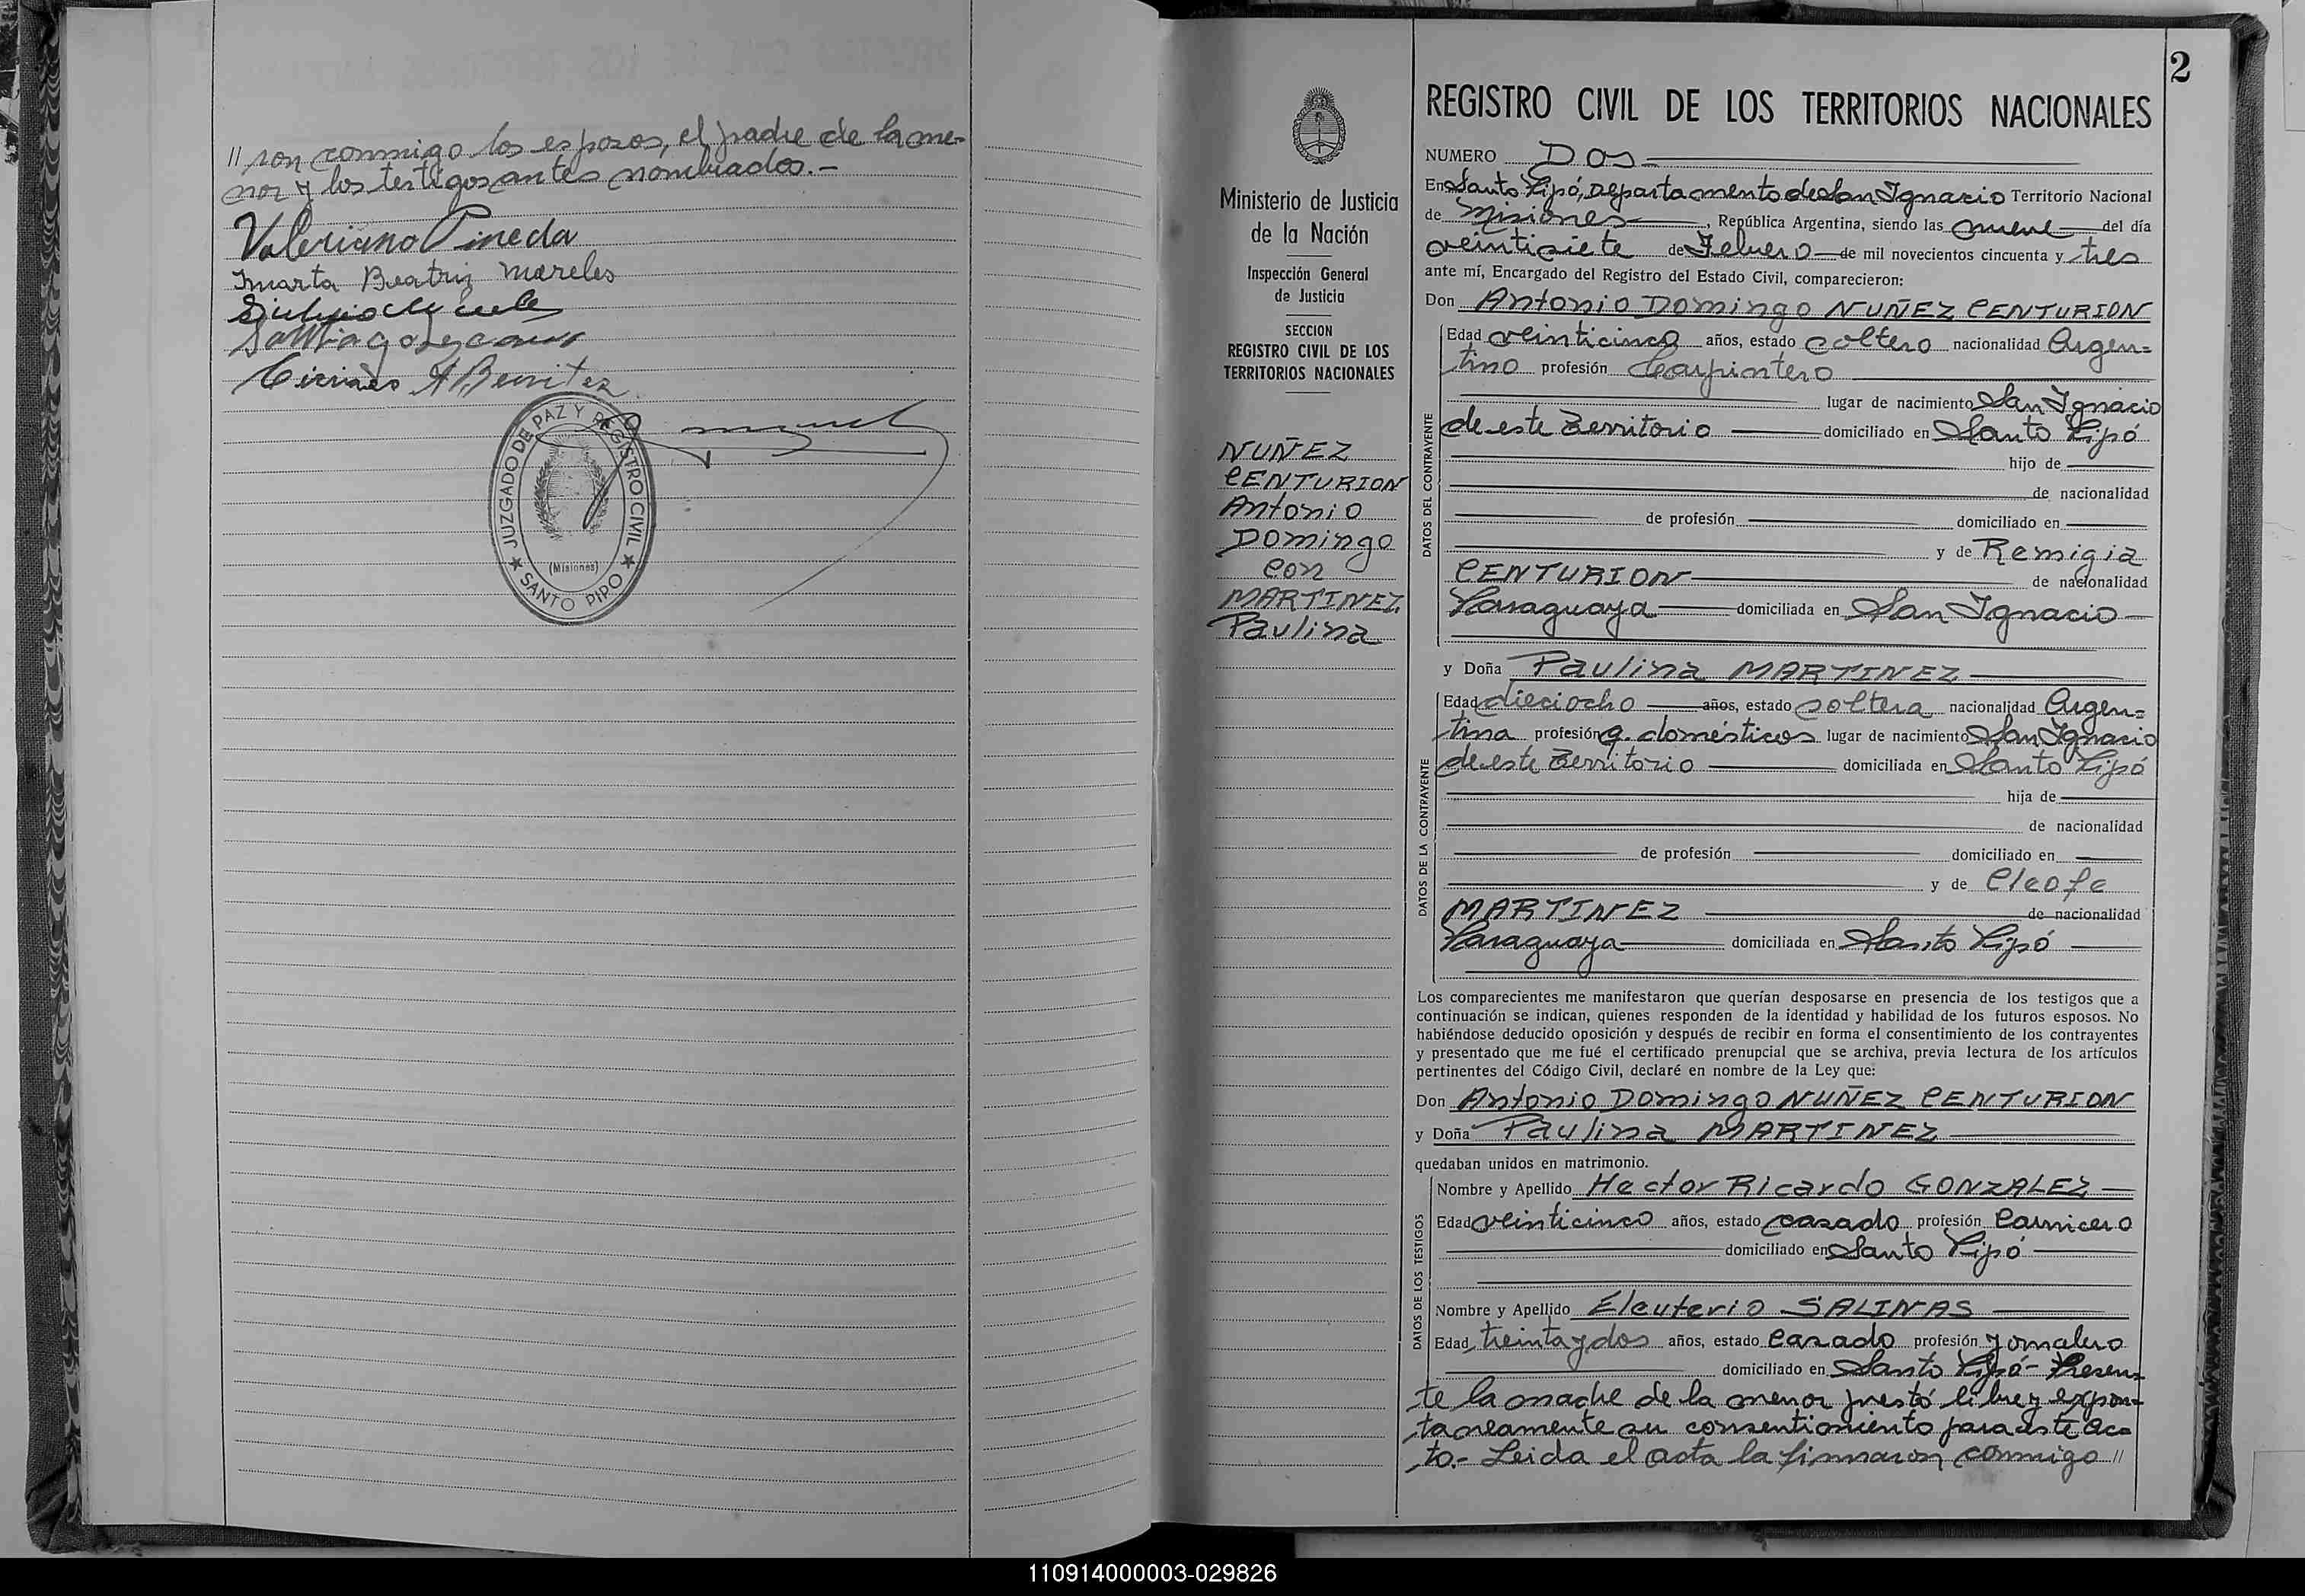 // ron conmigo los esposos, el padre de la me-
nor y los testigos antes nombrados.-
Valeriano Pineda
Marta Beatriz Mareles
Benitez
JUZGADO DE PAZ Y REGISTRO CIVIL
(Misiones)
★ SANTO PIPO ★
2
Ministerio de Justicia
de la Nación
Inspección General
de Justicia
SECCION
REGISTRO CIVIL DE LOS
TERRITORIOS NACIONALES
NUÑEZ
CENTURION
Antonio
Domingo
con
MARTINEZ
Paulina
REGISTRO CIVIL DE LOS TERRITORIOS NACIONALES
NUMERO Dos
En Santo Pipó, Departamento de San Ignacio Territorio Nacional
de Misiones, República Argentina, siendo las nueve del día
veintisiete de Febrero de mil novecientos cincuenta y tres
ante mí, Encargado del Registro del Estado Civil, comparecieron:
Don Antonio Domingo NUÑEZ CENTURION
DATOS DEL CONTRAYENTE
Edad veinticinco años, estado soltero nacionalidad Argen=
tino profesión Carpintero
lugar de nacimiento San Ignacio
de este Territorio domiciliado en Santo Pipó
hijo de
de nacionalidad
de profesión domiciliado en
y de Remigia
CENTURION de nacionalidad
Paraguaya domiciliada en San Ignacio
y Doña Paulina MARTINEZ
DATOS DE LA CONTRAYENTE
Edad dieciocho años, estado soltera nacionalidad Argen=
tina profesión q. domésticos lugar de nacimiento San Ignacio
de este Territorio domiciliada en Santo Pipó
hija de
de nacionalidad
de profesión domiciliado en
y de Cleofe
MARTINEZ de nacionalidad
Paraguaya domiciliada en Santo Pipó
Los comparecientes me manifestaron que querían desposarse en presencia de los testigos que a
continuación se indican, quienes responden de la identidad y habilidad de los futuros esposos. No
habiéndose deducido oposición y después de recibir en forma el consentimiento de los contrayentes
y presentado que me fué el certificado prenupcial que se archiva, previa lectura de los artículos
pertinentes del Código Civil, declaré en nombre de la Ley que:
Don Antonio Domingo NUÑEZ CENTURION
y Doña Paulina MARTINEZ
quedaban unidos en matrimonio.
DATOS DE LOS TESTIGOS
Nombre y Apellido Hector Ricardo GONZALEZ
Edad veinticinco años, estado casado profesión Carnicero
domiciliado en Santo Pipó
Nombre y Apellido Eleuterio SALINAS
Edad treinta y dos años, estado casado profesión jornalero
domiciliado en Santo Pipó- Presen=
te la madre de la menor prestó libre y expon=
taneamente su consentimiento para este ac=
to.- Leida el acta la firmaron conmigo //
110914000003-029826